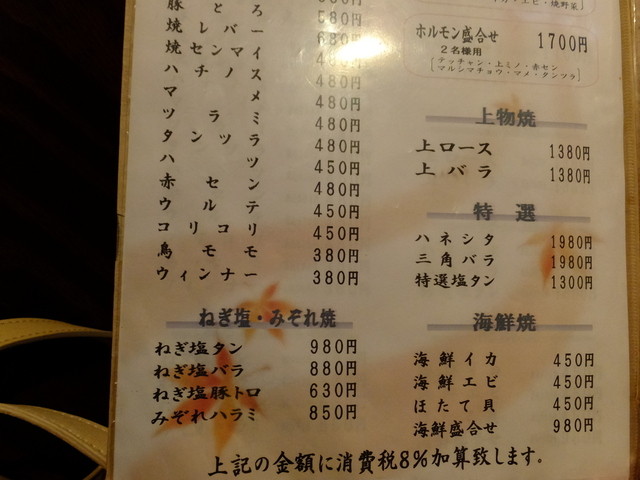 豚とろ 580円
焼レバー 680円
焼センマイ 480円
ハチノス 480円
マメ 480円
ツラミ 480円
タンツラ 480円
ハツ 450円
赤セン 480円
ウルテ 450円
コリコリ 450円
鳥モモ 380円
ウィンナー 380円
ねぎ塩・みぞれ焼
ねぎ塩タン 980円
ねぎ塩バラ 880円
ねぎ塩豚トロ 630円
みぞれハラミ 850円
イカ・エビ・焼野菜
ホルモン盛合せ 1700円
2名様用
テッチャン・上ミノ・赤セン
マルシマチョウ・マメ・タンツラ
上物焼
上ロース 1380円
上バラ 1380円
特選
ハネシタ 1980円
三角バラ 1980円
特選塩タン 1300円
海鮮焼
海鮮イカ 450円
海鮮エビ 450円
ほたて貝 450円
海鮮盛合せ 980円
上記の金額に消費税8%加算致します。